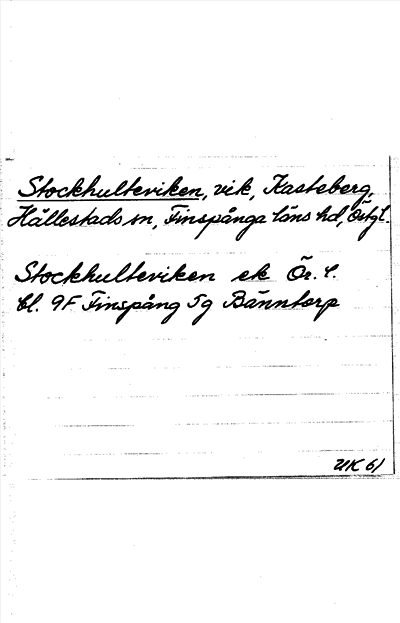 Stockhulteviken, vik, Kasteberg,
Hällestads sn, Finspånga läns hd, Östgl.
Stockhulteviken ek Ör. l.
bl. 9F Finspång 5g Bänntorp
UK 61